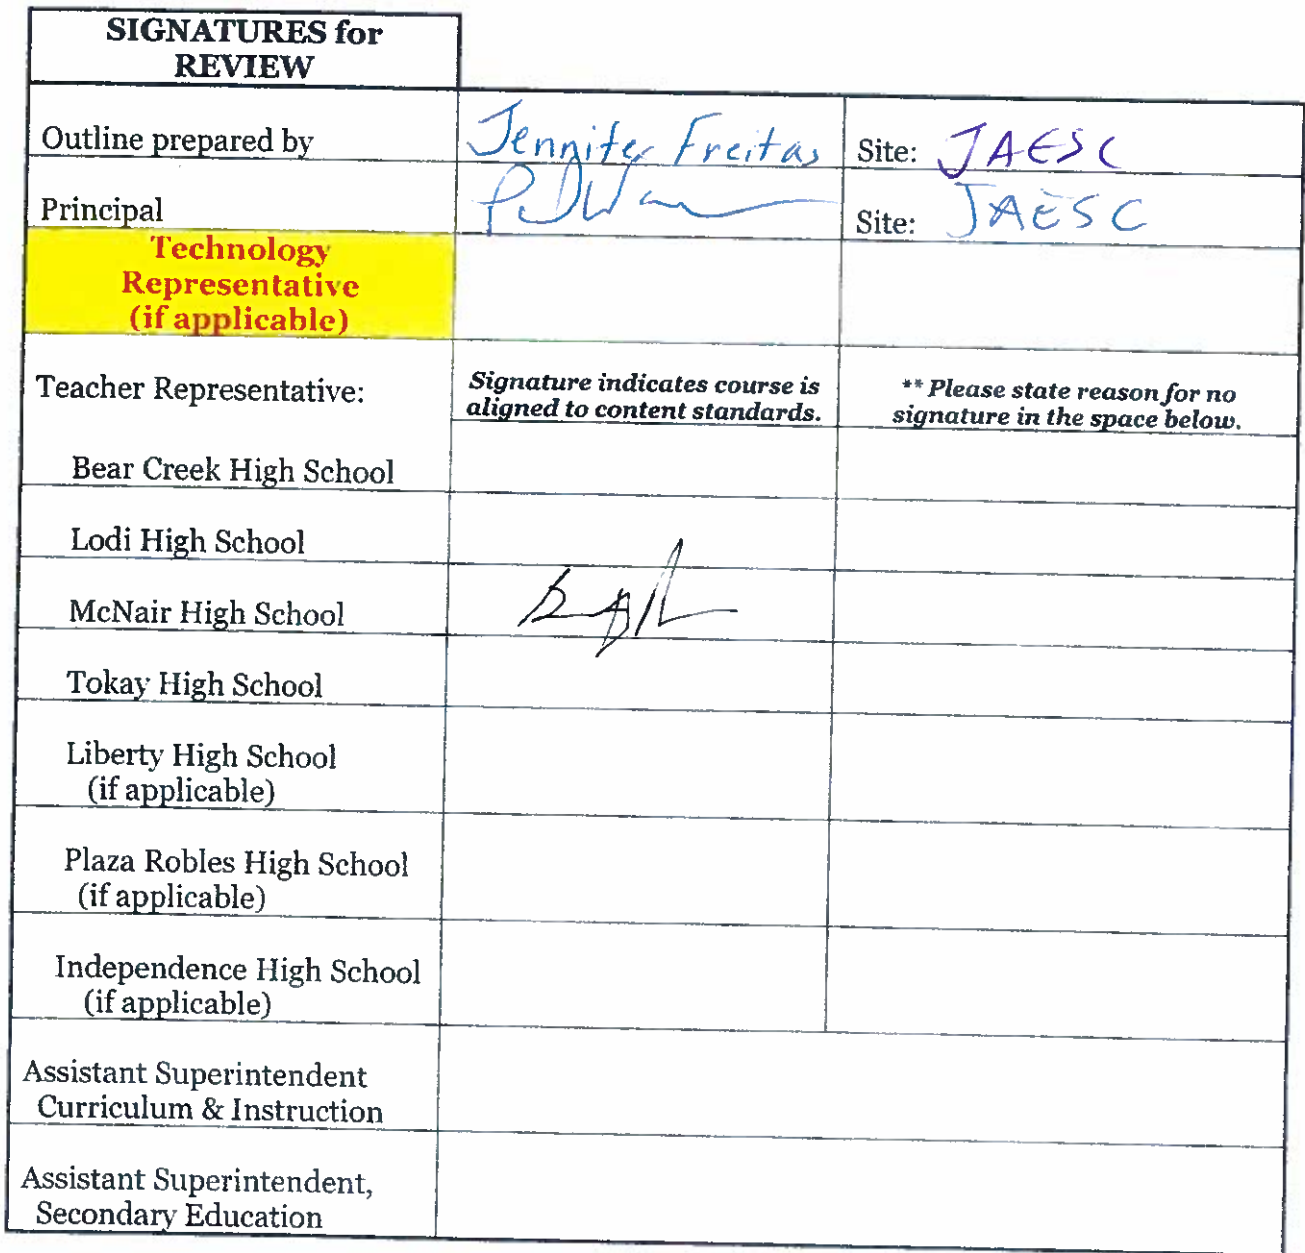 SIGNATURES for
REVIEW
Outline prepared by
Jennifer Freitas
Site: JAESC
Principal
Site: JAESC
Technology
Representative
(if applicable)
Teacher Representative:
Signature indicates course is
aligned to content standards.
** Please state reason for no
signature in the space below.
Bear Creek High School
Lodi High School
McNair High School
Tokay High School
Liberty High School
(if applicable)
Plaza Robles High School
(if applicable)
Independence High School
(if applicable)
Assistant Superintendent
Curriculum & Instruction
Assistant Superintendent,
Secondary Education